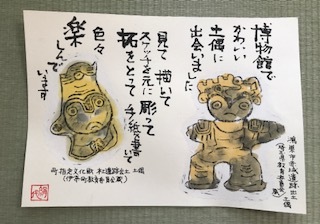 博物館で
かわいい
土偶に
出会いました
見て 描いて
スケッチを元に彫って
拓をとって
色々
楽
しんで
います
鴻巣市赤城遺跡出土 土偶
(埼玉県教育委員会蔵)
町指定文化財
遺跡出土 土偶
(伊奈町教育委員会蔵)